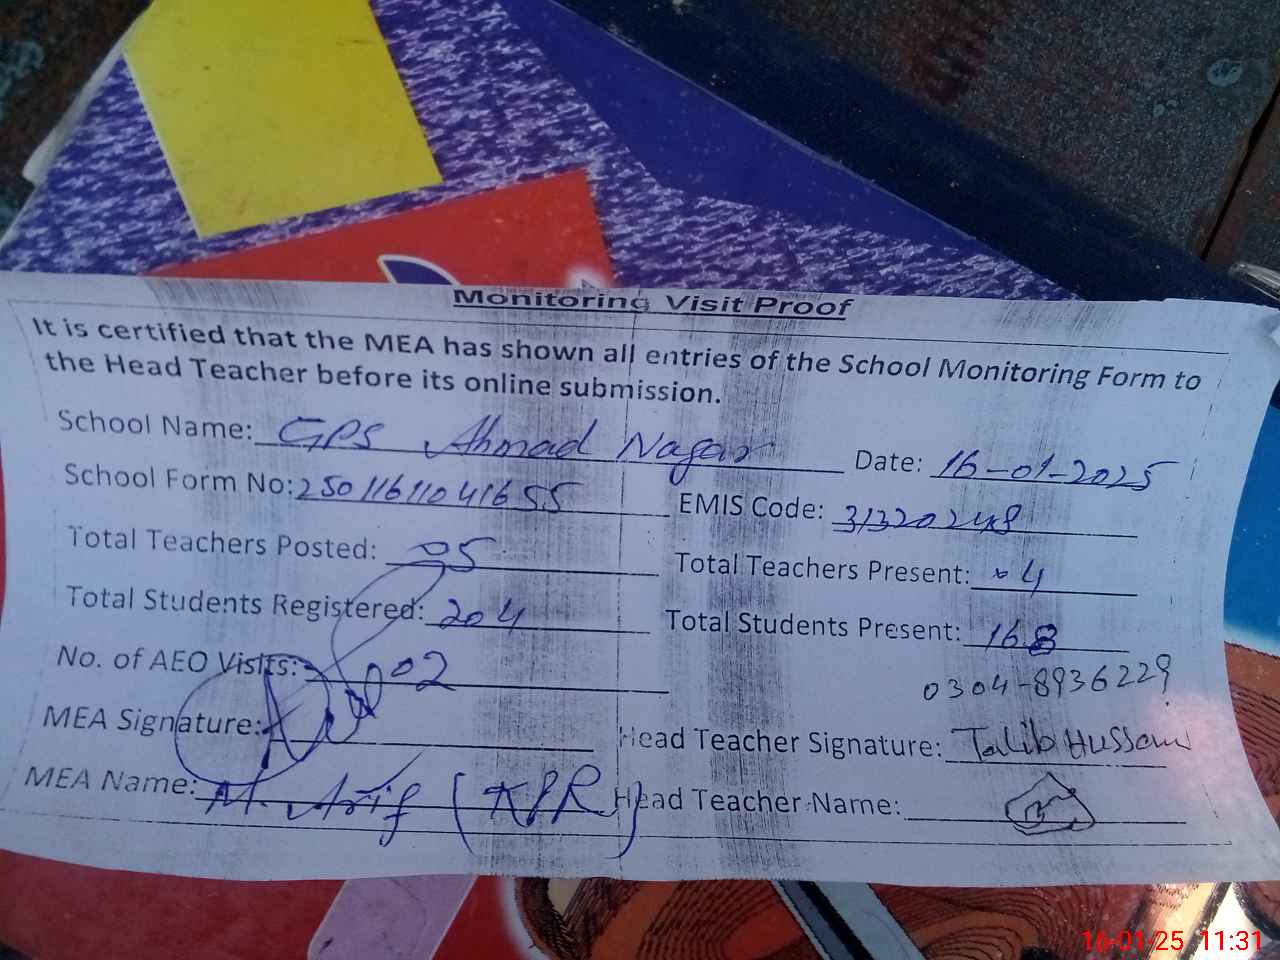 Monitoring Visit Proof
It is certified that the MEA has shown all entries of the School Monitoring Form to
the Head Teacher before its online submission.
School Name: GPS Ahmad Nagar Date: 16-01-2025
School Form No: 25011611041655 EMIS Code: 31320248
Total Teachers Posted: 05 Total Teachers Present: 04
Total Students Registered: 204 Total Students Present: 168
No. of AEO Visits: 02
0304-8936229
MEA Signature: Head Teacher Signature: Talib Hussain
MEA Name: M. Arif (KPR) Head Teacher Name:
16-01-25 11:31